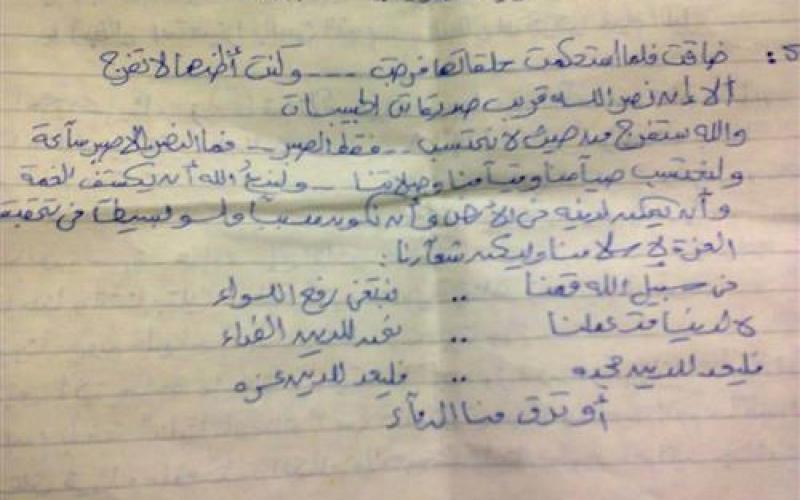 ضاقت فلما استحكمت حلقاتها فرجت --- وكنت أظنها لا تفرج
ألا إن نصر الله قريب صديقاتي الحبيبات
والله ستفرج من حيث لا نحتسب -- فقط الصبر -- فما النصر إلا صبر ساعة
ولنحتسب صيامنا وقيامنا وصلاتنا -- ولندعُ الله أن يكشف الغمة
وأن يمكن لدينه في الأرض وأن نكون سبباً ولو بسيطاً في تحقيق
العزة لإسلامنا وليكن شعارنا:
في سبيل الله قمنا .. نبتغي رفع اللواء
لا لدنيا قد عملنا .. نحن للدين الفداء
فليعد للدين مجده .. فليعد للدين عزه
أو ترق منا الدماء